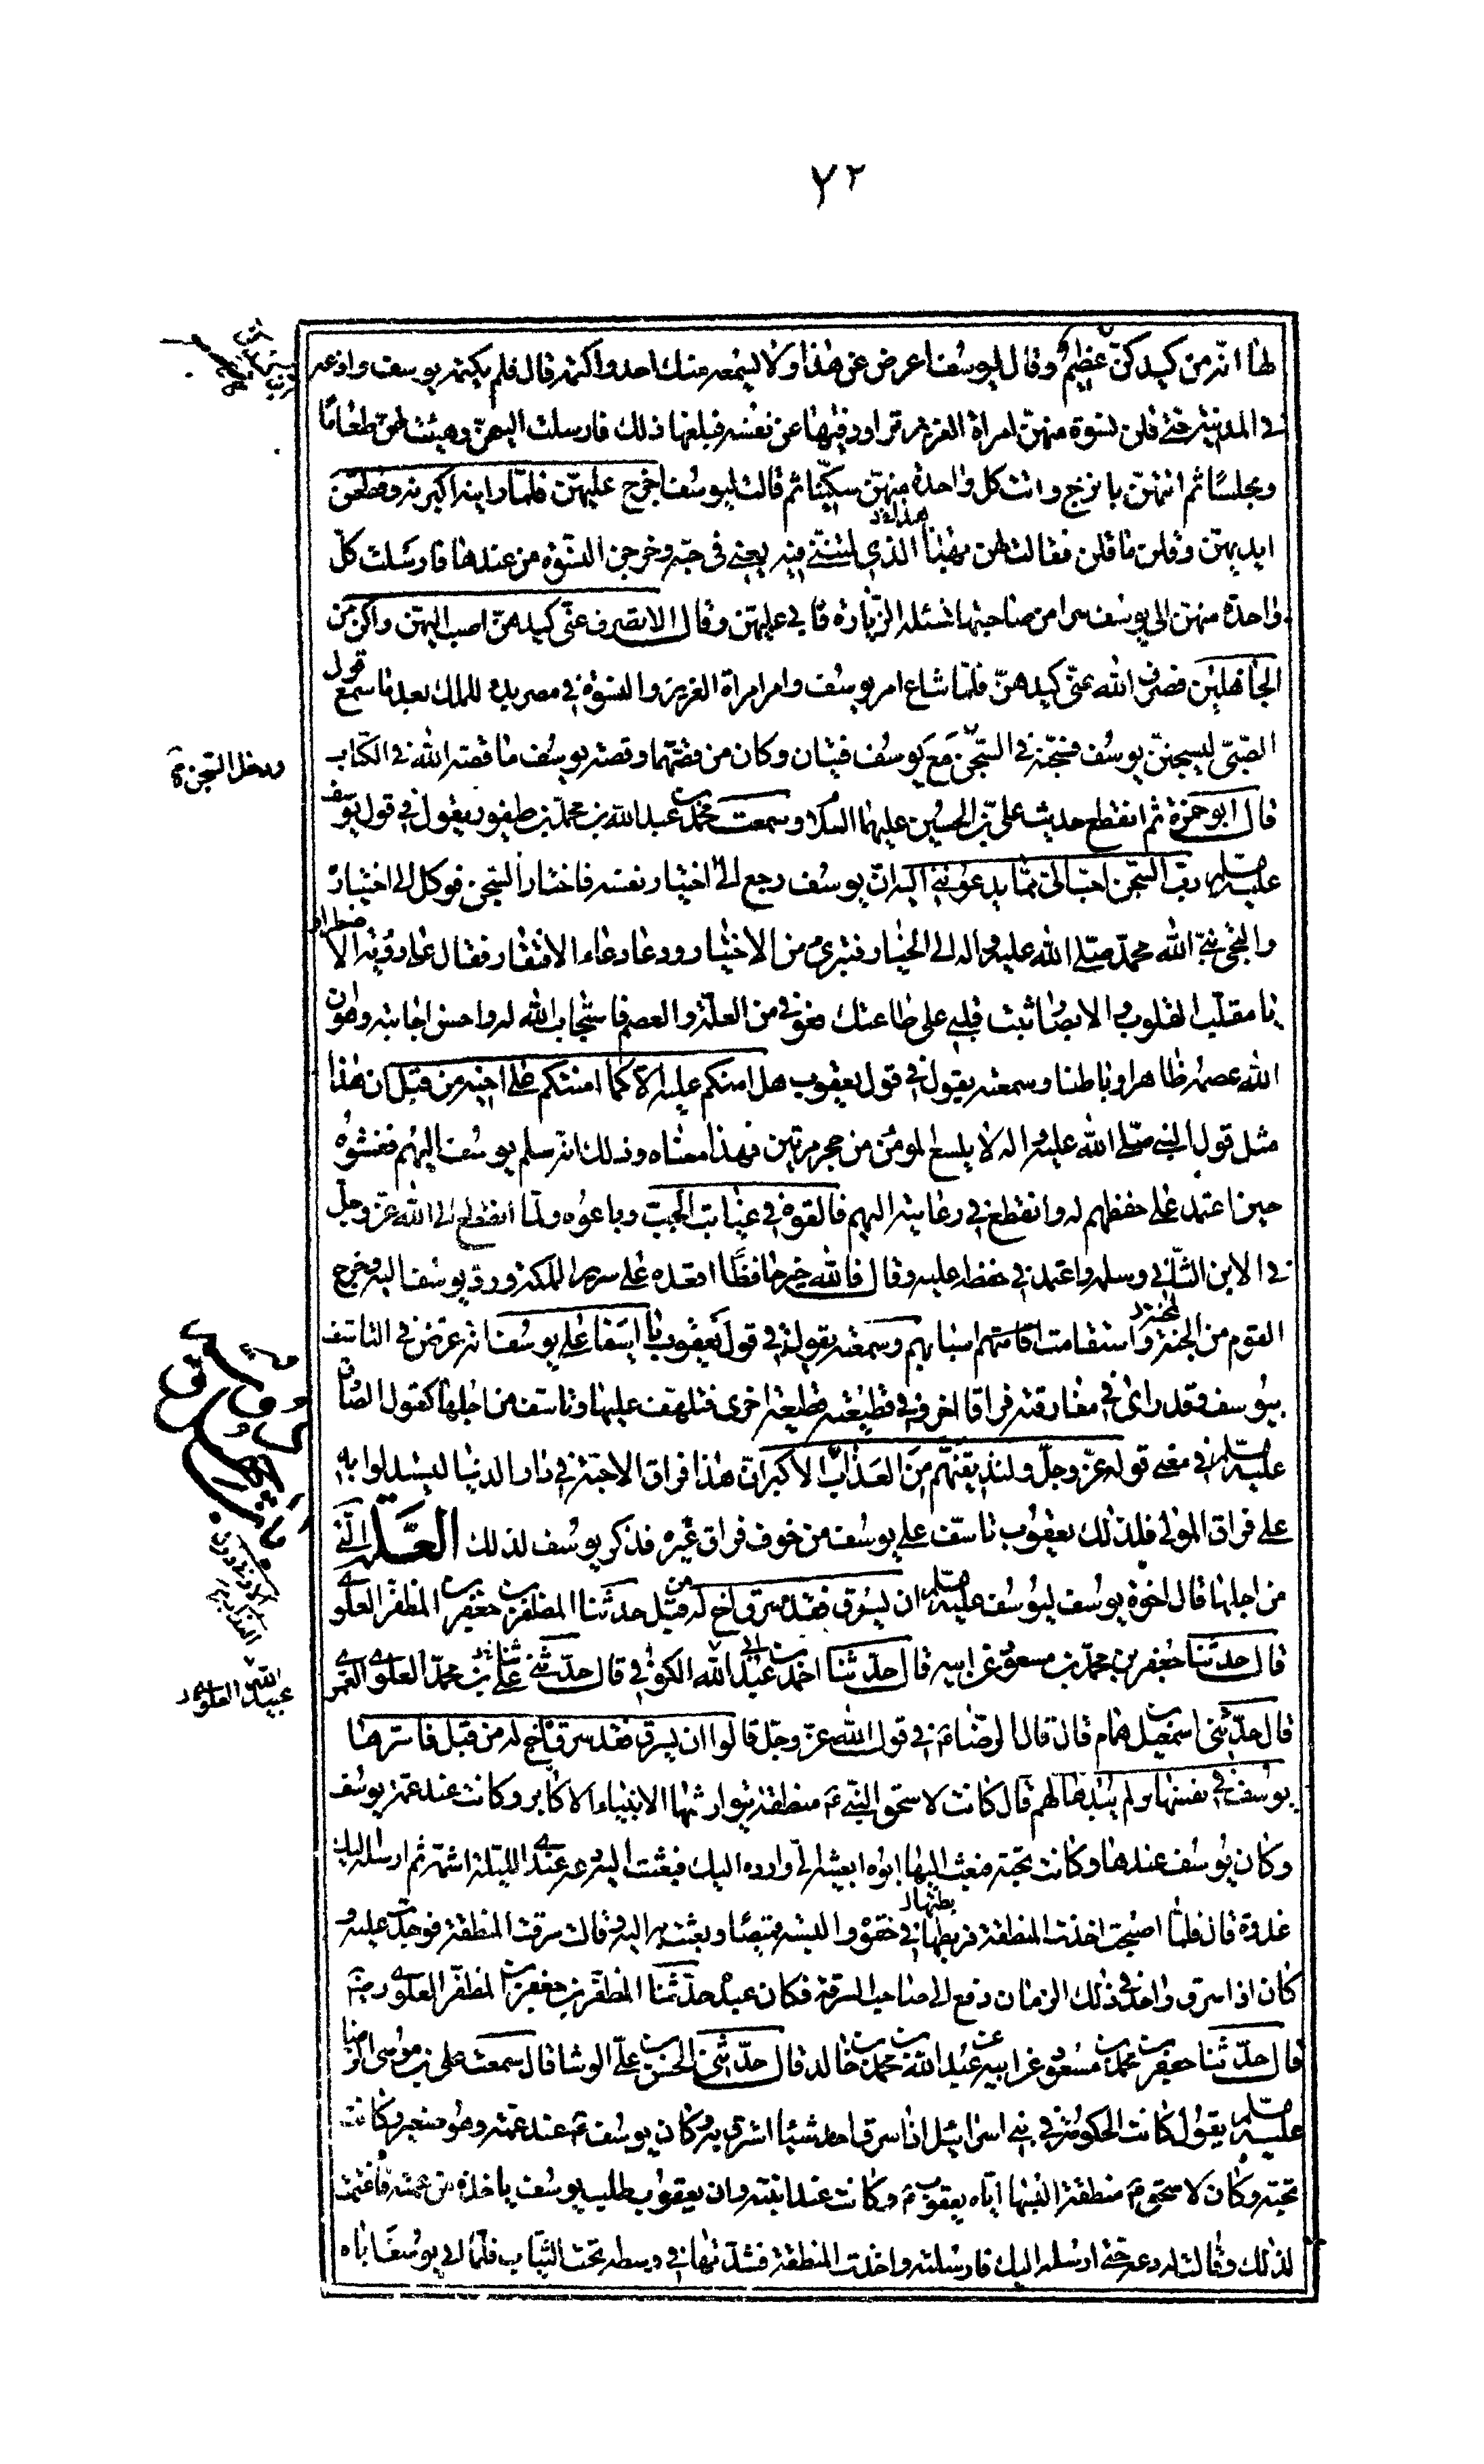 ٧٢
لها انه من كيدكن ان كيدكن عظيم وقال ليوسف اعرض عن هذا ولا يسمعه منك احد واكتمه قال فلم يكتمه يوسف واذاعه
في المدينة حتى قلن نسوة منهن امراة العزيز تراود فتيها عن نفسه فبلغها ذلك فارسلت اليهن وهيئت لهن طعاما
ومجلسا ثم اتتهن باترج واتت كل واحدة منهن سكينا ثم قالت ليوسف اخرج عليهن فلما راينه اكبرنه وقطعن
ايديهن وقلن ما قلن فقالت لهن هذا الذي لمتنني فيه يعني في حبه وخرجن النسوة من عندها فارسلت كل
واحدة منهن الى يوسف سرا من صاحبتها تسئله الزيارة فابى عليهن وقال الا تصرف عني كيدهن اصب اليهن واكن من
الجاهلين فصرف الله عنه كيدهن فلما شاع امر يوسف وامر امراة العزيز والنسوة في مصر بدا للملك بعد ما سمع قول
الصبي ليسجنن يوسف فسجنه في السجن مع يوسف فتيان وكان من قصتهما وقصة يوسف ما قصه الله في الكتاب
ودخل السجن
قال ابو حمزة ثم انقطع حديث علي بن الحسين عليهما السلام وسمعت محمد بن عبدالله بن محمد بن طيفور يقول في قول يوسف
عليه السلام رب السجن احب الي مما يدعونني اليه ان يوسف رجع الى اختيار نفسه فاختار السجن فوكل الى اختياره
والتجى نبي الله محمد صلى الله عليه واله الى الخيار فتبرء من الاختيار ودعا دعاء الافتقار فقال على رؤية الاضطرار
يا مقلب القلوب والابصار ثبت قلبي على طاعتك فعوفي من العلة والعصم فاستجاب الله له واحسن اجابته وهو ان
الله عصمه ظاهرا وباطنا وسمعته يقول في قول يعقوب هل امنكم عليه الا كما امنتكم على اخيه من قبل ان هذا
مثل قول النبي صلى الله عليه واله لا يلسع المؤمن من جحر مرتين فهذا معناه وذلك انه سلم يوسف اليهم فغشوه
حين اعتمد على حفظهم له وانقطع في رعايته اليهم فالقوه في غيابت الجب وباعوه ولما انقطع الى الله عز وجل
في الابن الثاني وسلمه واعتمد في حفظه عليه وقال فالله خير حافظا اقعده على سرير المملكة ورد يوسف اليه وخرج
القوم من المحنة واستقامت اسبابهم وسمعته يقول في قول يعقوب يا اسفا على يوسف انه عرض في التاسف
بيوسف وقد راى في مفارقته فراقا اخر وفي قطيعته قطيعة اخرى فتلهف عليها وتاسف من اجلها كقول الصادق
عليه السلام في معنى قوله عز وجل ولنذيقنهم من العذاب الاكبر ان هذا فراق الاحبة في دار الدنيا ليستدلوا به
على فراق المولى فلذلك يعقوب تاسف على يوسف من خوف فراق غيره فذكر يوسف لذلك العلة التي
من اجلها قال اخوة يوسف ليوسف عليه السلام ان يسرق فقد سرق اخ له من قبل حدثنا المظفر بن جعفر بن المظفر العلوي
قال حدثنا جعفر بن محمد بن مسعود عن ابيه قال حدثنا احمد بن عبد الله الكوفي قال حدثني علي بن محمد العلوي العمري
عبيد الله العلوي
قال حدثني اسمعيل همام قال قال الرضا في قول الله عز وجل قالوا ان يسرق فقد سرق اخ له من قبل فاسرها
يوسف في نفسه ولم يبدها لهم قال كانت لاسحق النبي منطقة يتوارثها الانبياء الاكابر وكانت عند عمة يوسف
وكان يوسف عندها وكانت تحبه فبعث اليها ابوه ابعثيه الي وارده اليك فبعثت اليه دعه عندي الليلة اشمه ثم ارسله اليك
غدوة قال فلما اصبحت اخذت المنطقة فربطها في حقوه والبسته قميصا وبعثت به اليه وقالت سرقت المنطقة فوجدت عليه و
كان اذا سرق واحد في ذلك الزمان دفع الى صاحب السرقة فكان عبده حدثنا المظفر بن جعفر بن المظفر العلوي
قال حدثنا جعفر بن محمد بن مسعود عن ابيه عن عبد الله بن محمد بن خالد قال حدثني الحسن بن علي الوشا قال سمعت علي بن موسى الرضا
عليه السلام يقول كانت الحكومة في بني اسرائيل اذا سرق احد شيئا استرق به وكان يوسف عند عمته وهو صغير وكانت
تحبه وكان لاسحق منطقة البسها اياه يعقوب وكانت عند ابنته وان يعقوب طلب يوسف ياخذه من عمته فاغتمت
لذلك وقالت له دعه حتى ارسله اليك فارسلته واخذت المنطقة فشدتها في وسطه تحت الثياب فلما اتى يوسف اباه